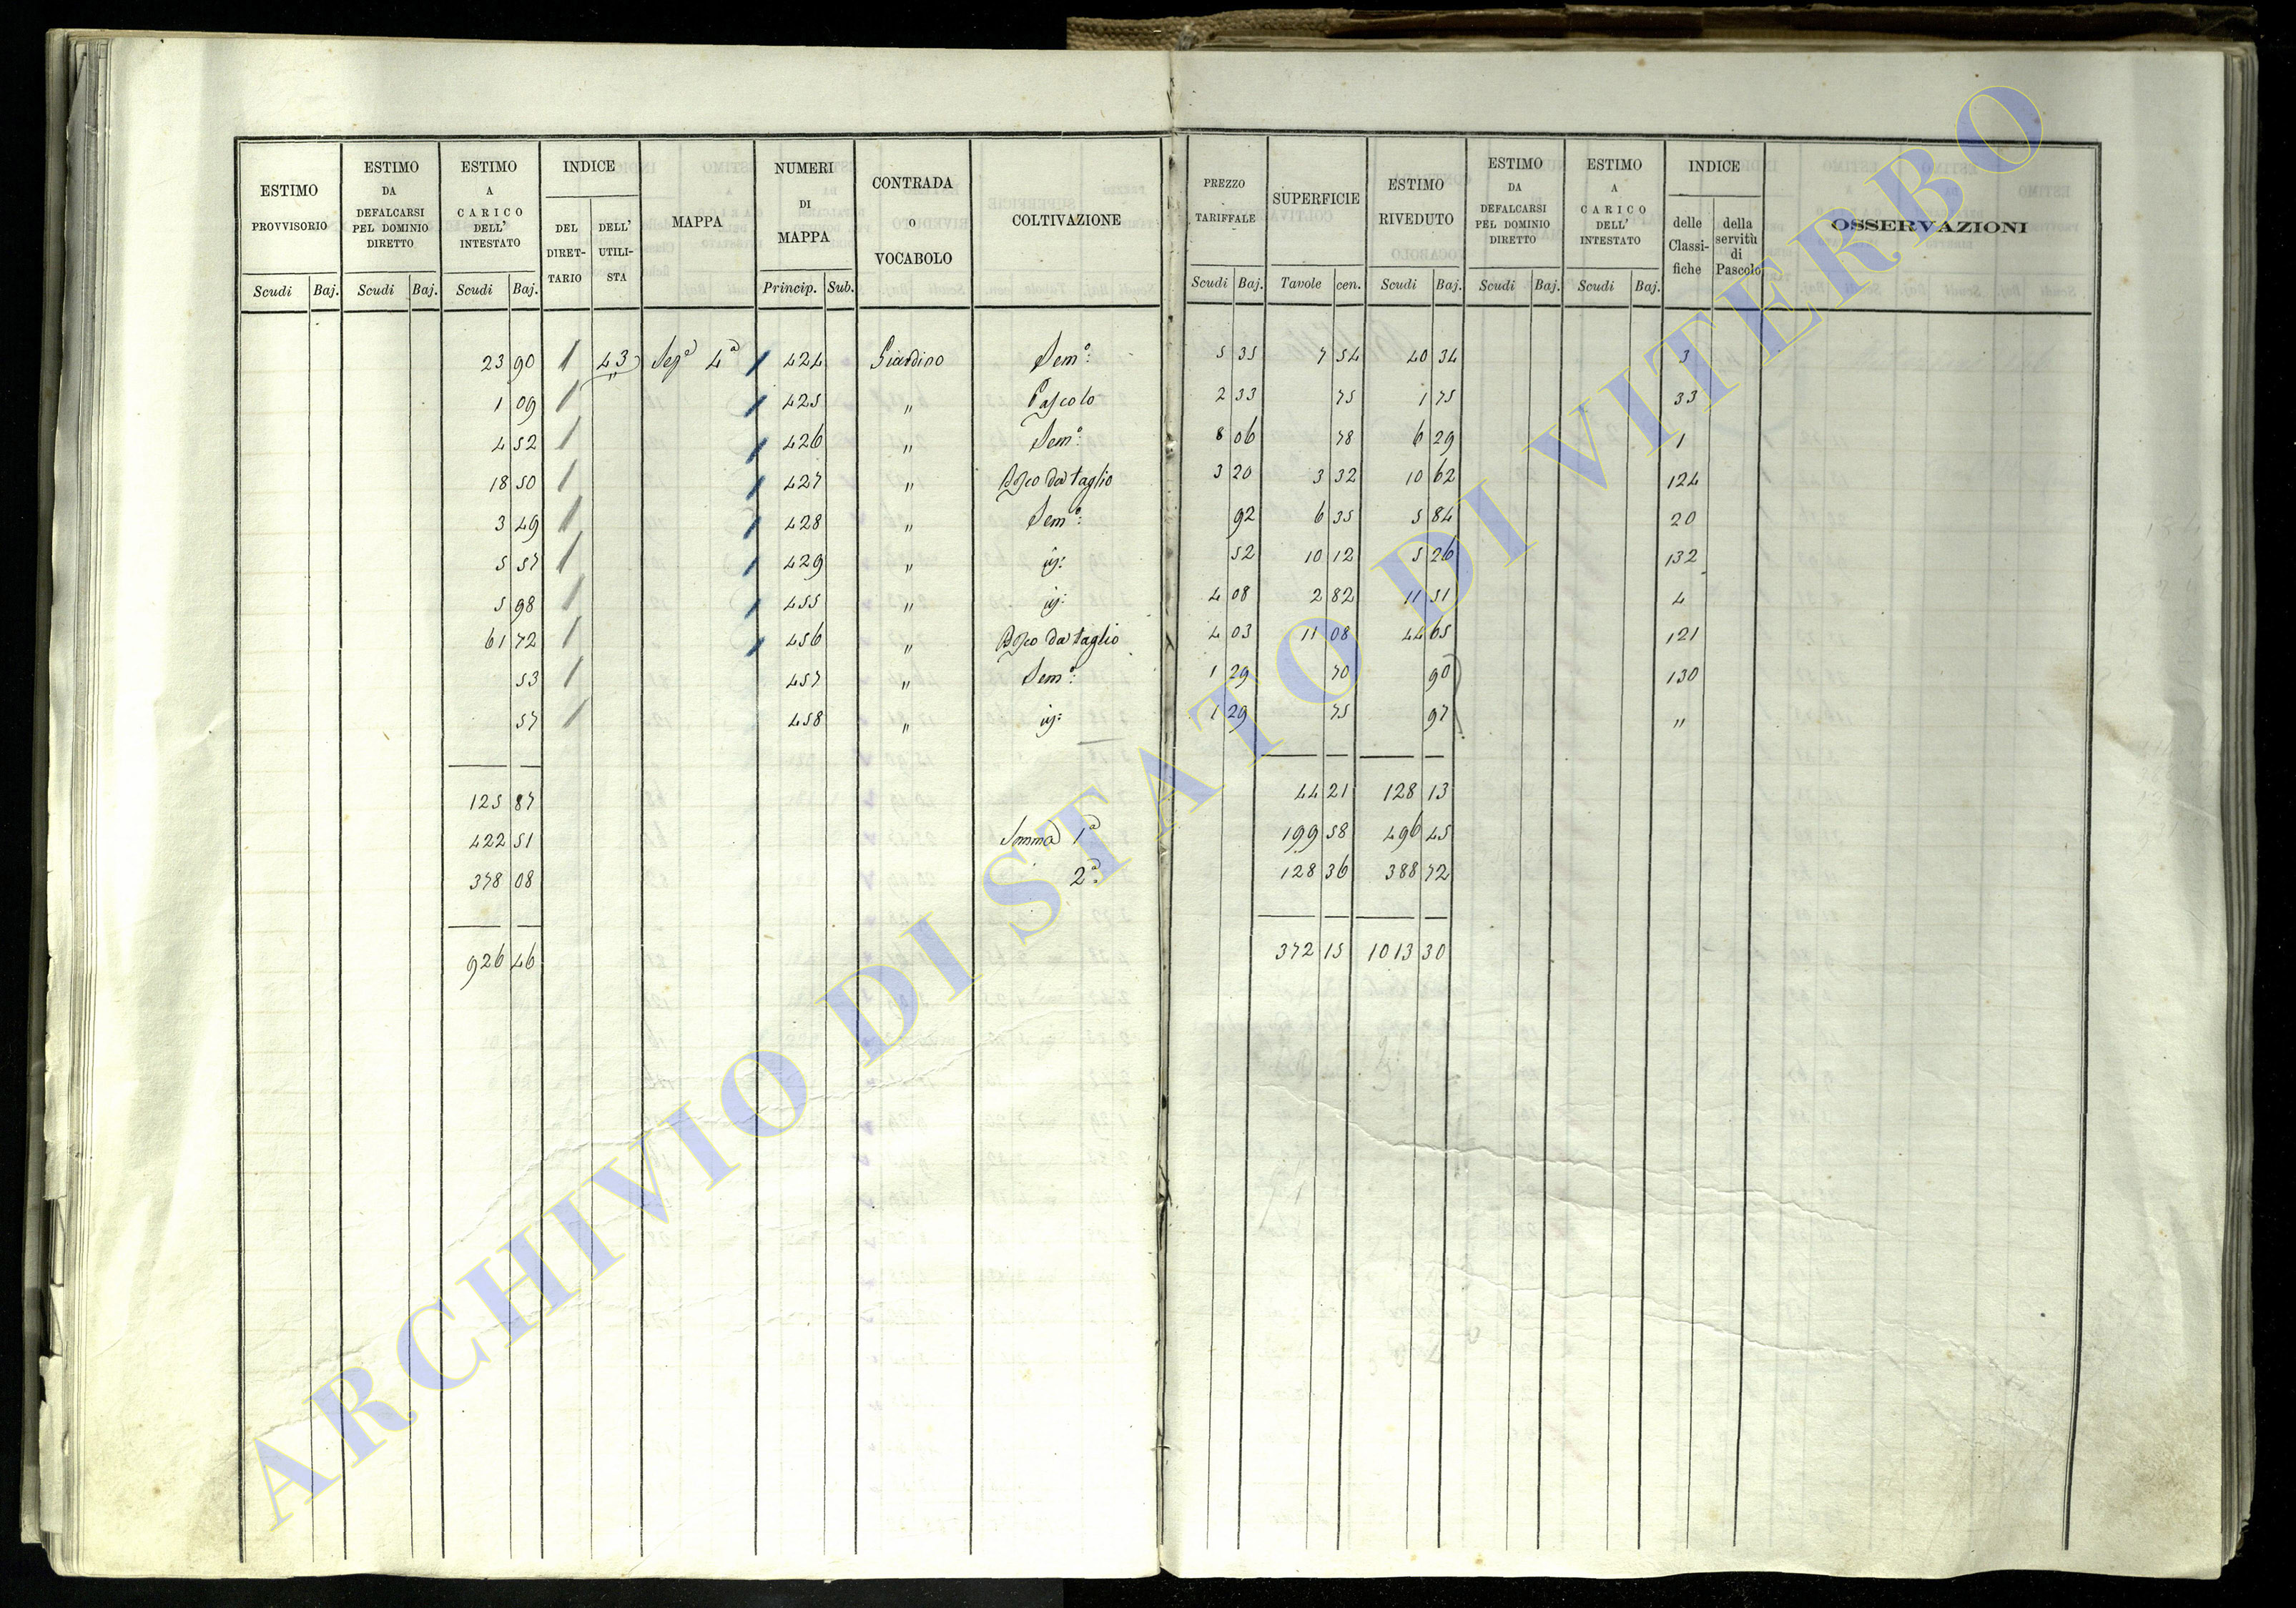 ESTIMO PROVVISORIO | ESTIMO DA DEFALCARSI PEL DOMINIO DIRETTO | ESTIMO A CARICO DELL' INTESTATO | INDICE | MAPPA | NUMERI DI MAPPA | CONTRADA o VOCABOLO | COLTIVAZIONE | PREZZO TARIFFALE | SUPERFICIE | ESTIMO RIVEDUTO | ESTIMO DA DEFALCARSI PEL DOMINIO DIRETTO | ESTIMO A CARICO DELL' INTESTATO | INDICE | OSSERVAZIONI
DEL DIRETTARIO | DELL' UTILISTA | delle Classifiche | della servitù di Pascolo
Scudi | Baj. | Scudi | Baj. | Scudi | Baj. | Princip. | Sub. | Scudi | Baj. | Tavole | cen. | Scudi | Baj. | Scudi | Baj. | Scudi | Baj.
23 90 | 43 | Sezª 4ª | 424 | Giardino | Semº: | 5 35 | 7 54 | 40 34 | 3
1 09 | " | 425 | " | Pascolo | 2 33 | 75 | 1 75 | 33
4 52 | 426 | " | Semº: | 8 06 | 78 | 6 29 | 1
18 50 | 427 | " | Bosco da taglio | 3 20 | 3 32 | 10 62 | 124
3 49 | 428 | " | Semº: | 92 | 6 35 | 5 84 | 20
5 57 | 429 | " | 52 | 10 12 | 5 26 | 132
5 98 | 455 | " | 4 08 | 2 82 | 11 51 | 4
61 72 | 456 | " | Bosco da taglio | 4 03 | 11 08 | 44 65 | 121
53 | 457 | " | Semº: | 1 29 | 70 | 90 | 130
57 | 458 | " | 1 29 | 75 | 97 | "
125 87 | 44 21 | 128 13
422 51 | Somma 1ª | 199 58 | 496 45
378 08 | 2ª | 128 36 | 388 72
926 46 | 372 15 | 1013 30
ARCHIVIO DI STATO DI VITERBO